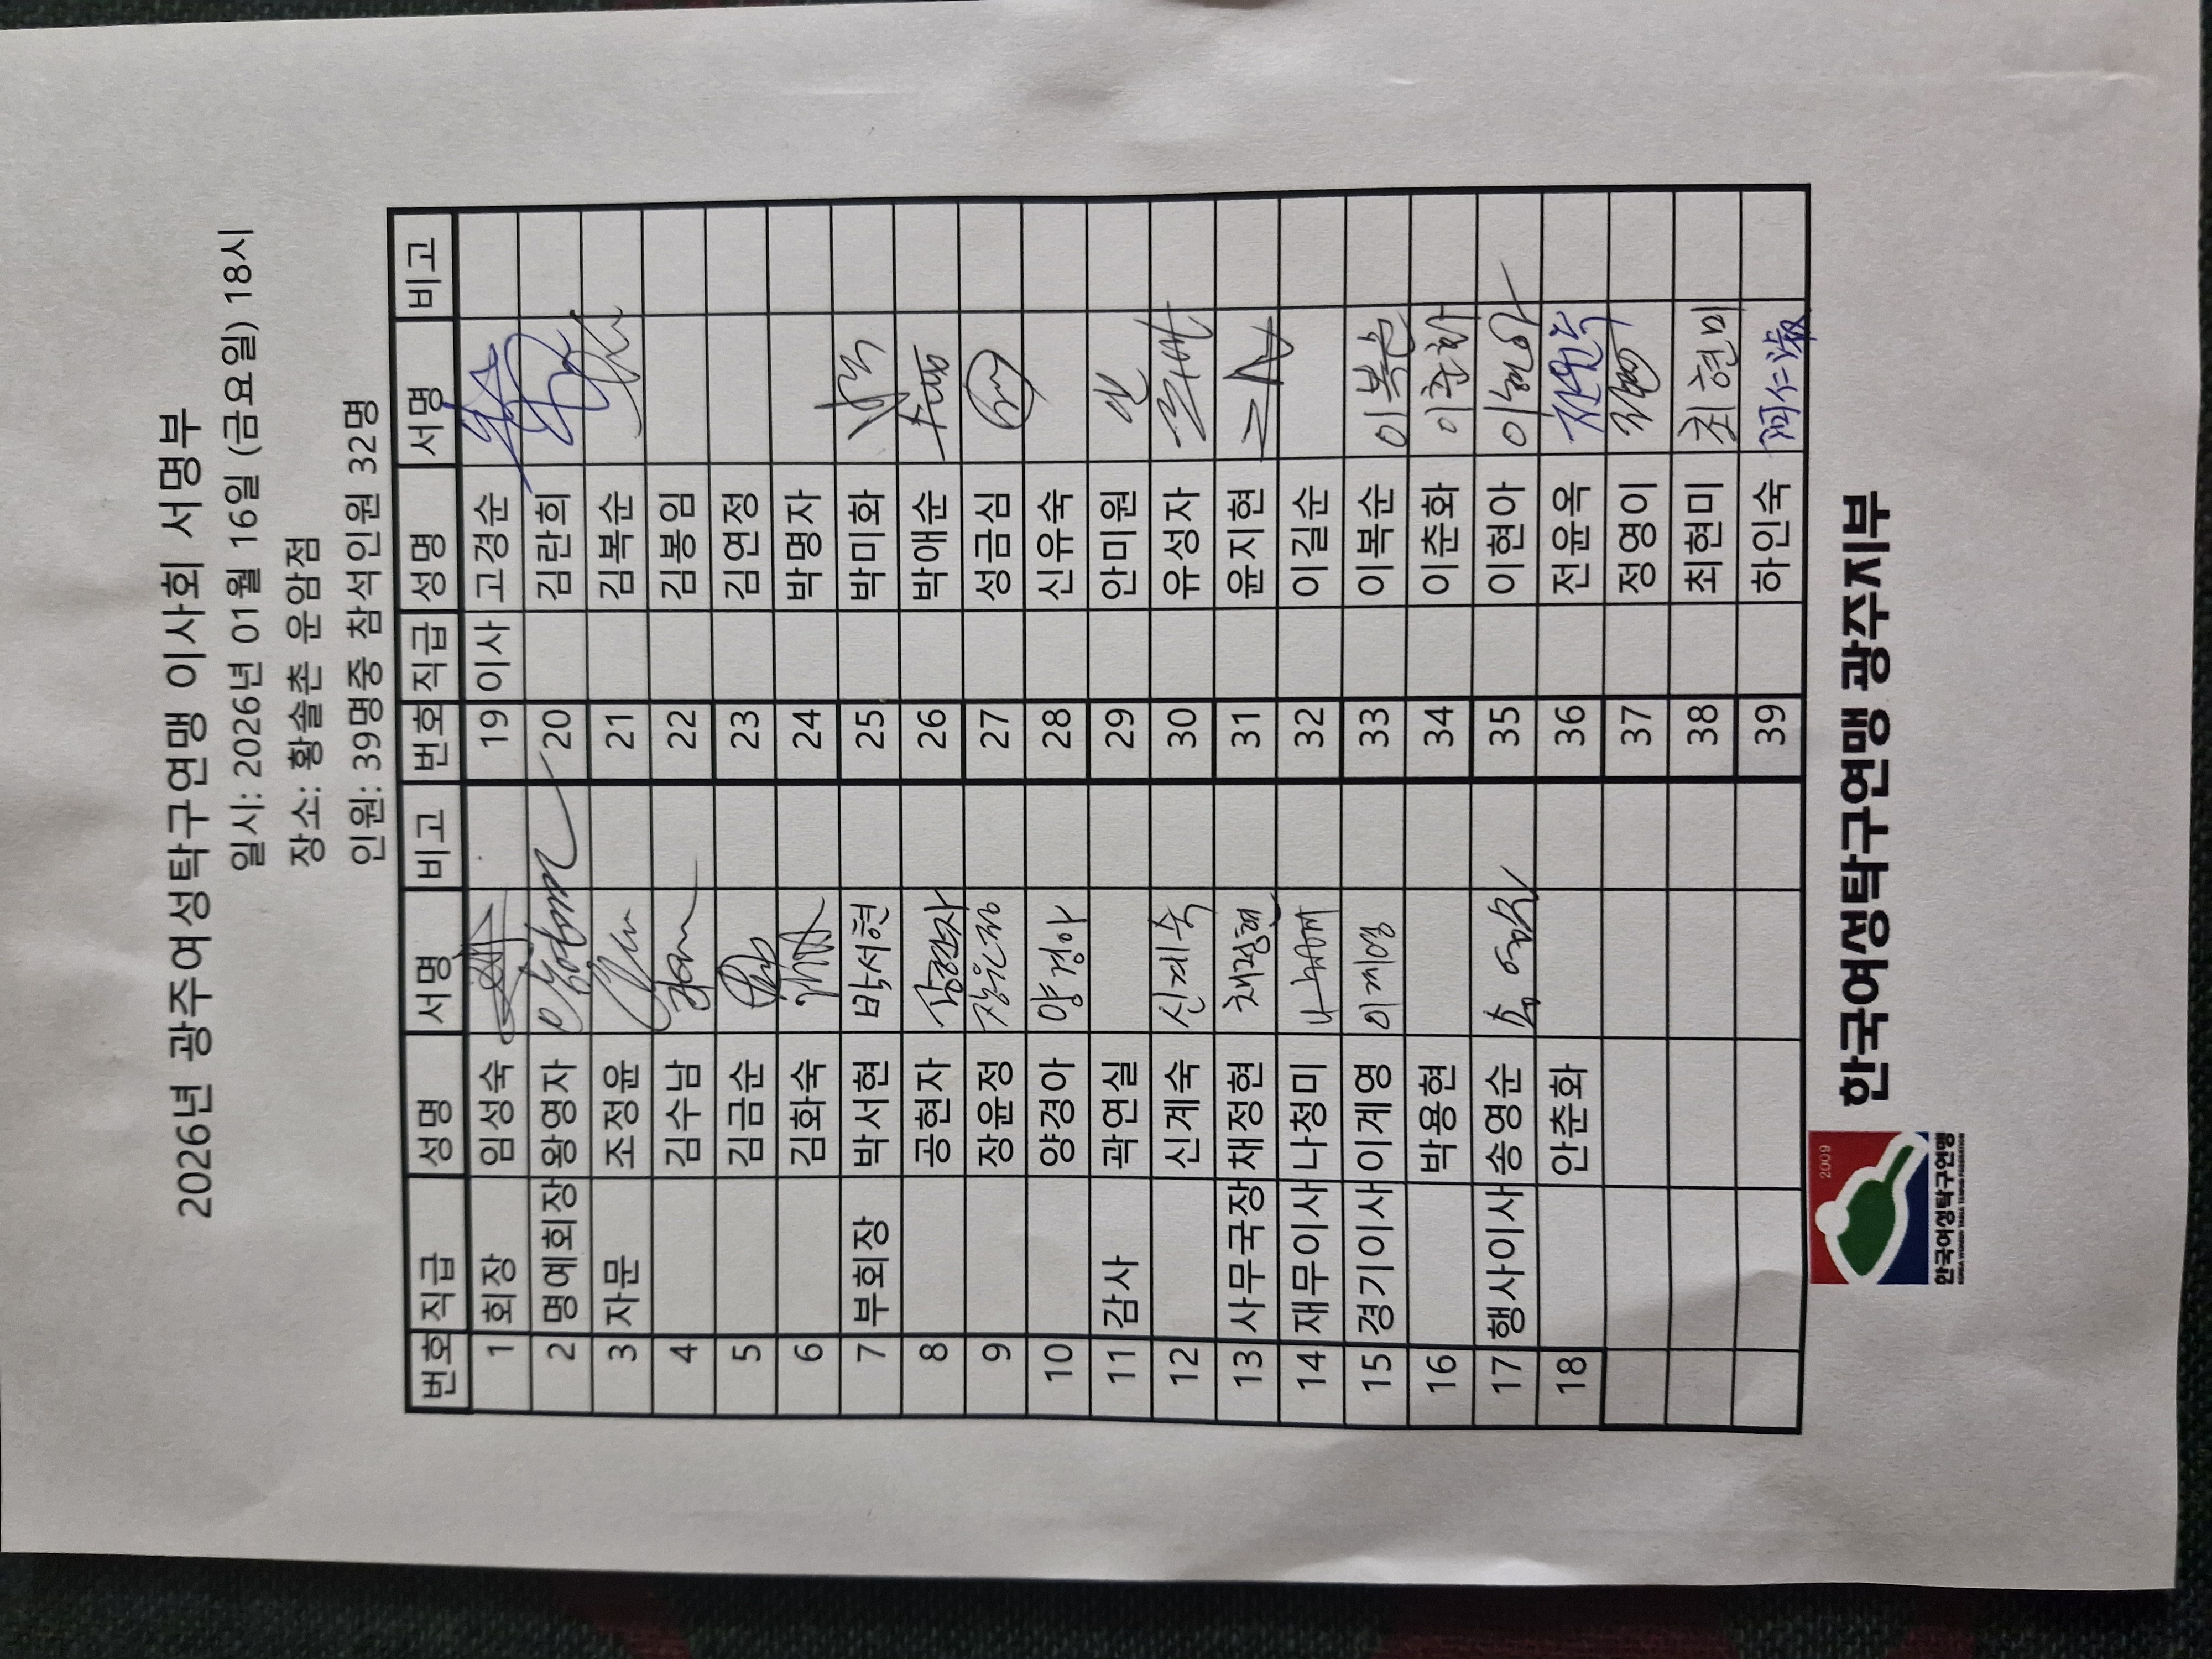 2026년 광주여성탁구연맹 이사회 서명부
일시: 2026년 01월 16일 (금요일) 18시
장소: 황솔촌 운암점
인원: 39명중 참석인원 32명
번호 직급 성명 서명 비고 번호 직급 성명 서명 비고
1 회장 임성숙 19 이사 고경순
2 명예회장 왕영자 20 김란희
3 자문 조정윤 21 김복순
4 김수남 22 김봉임
5 김금순 23 김연정
6 김화숙 24 박명자
7 부회장 박서현 박서현 25 박미화
8 공현자 26 박애순
9 장윤정 장윤정 27 성금심
10 양경아 양경아 28 신유숙
11 감사 곽연실 29 안미원 안
12 신계숙 신계숙 30 유성자
13 사무국장 채정현 채정현 31 윤지현
14 재무이사 나청미 32 이길순
15 경기이사 이계영 이계영 33 이복순 이복순
16 박용현 34 이춘화 이춘화
17 행사이사 송영순 송영순 35 이현아 이현아
18 안춘화 36 전윤옥 전윤옥
37 정영이
38 최현미 최현미
39 하인숙 河仁淑
2009
한국여성탁구연맹
KOREA WOMEN TABLE TENNIS FEDERATION
한국여성탁구연맹 광주지부